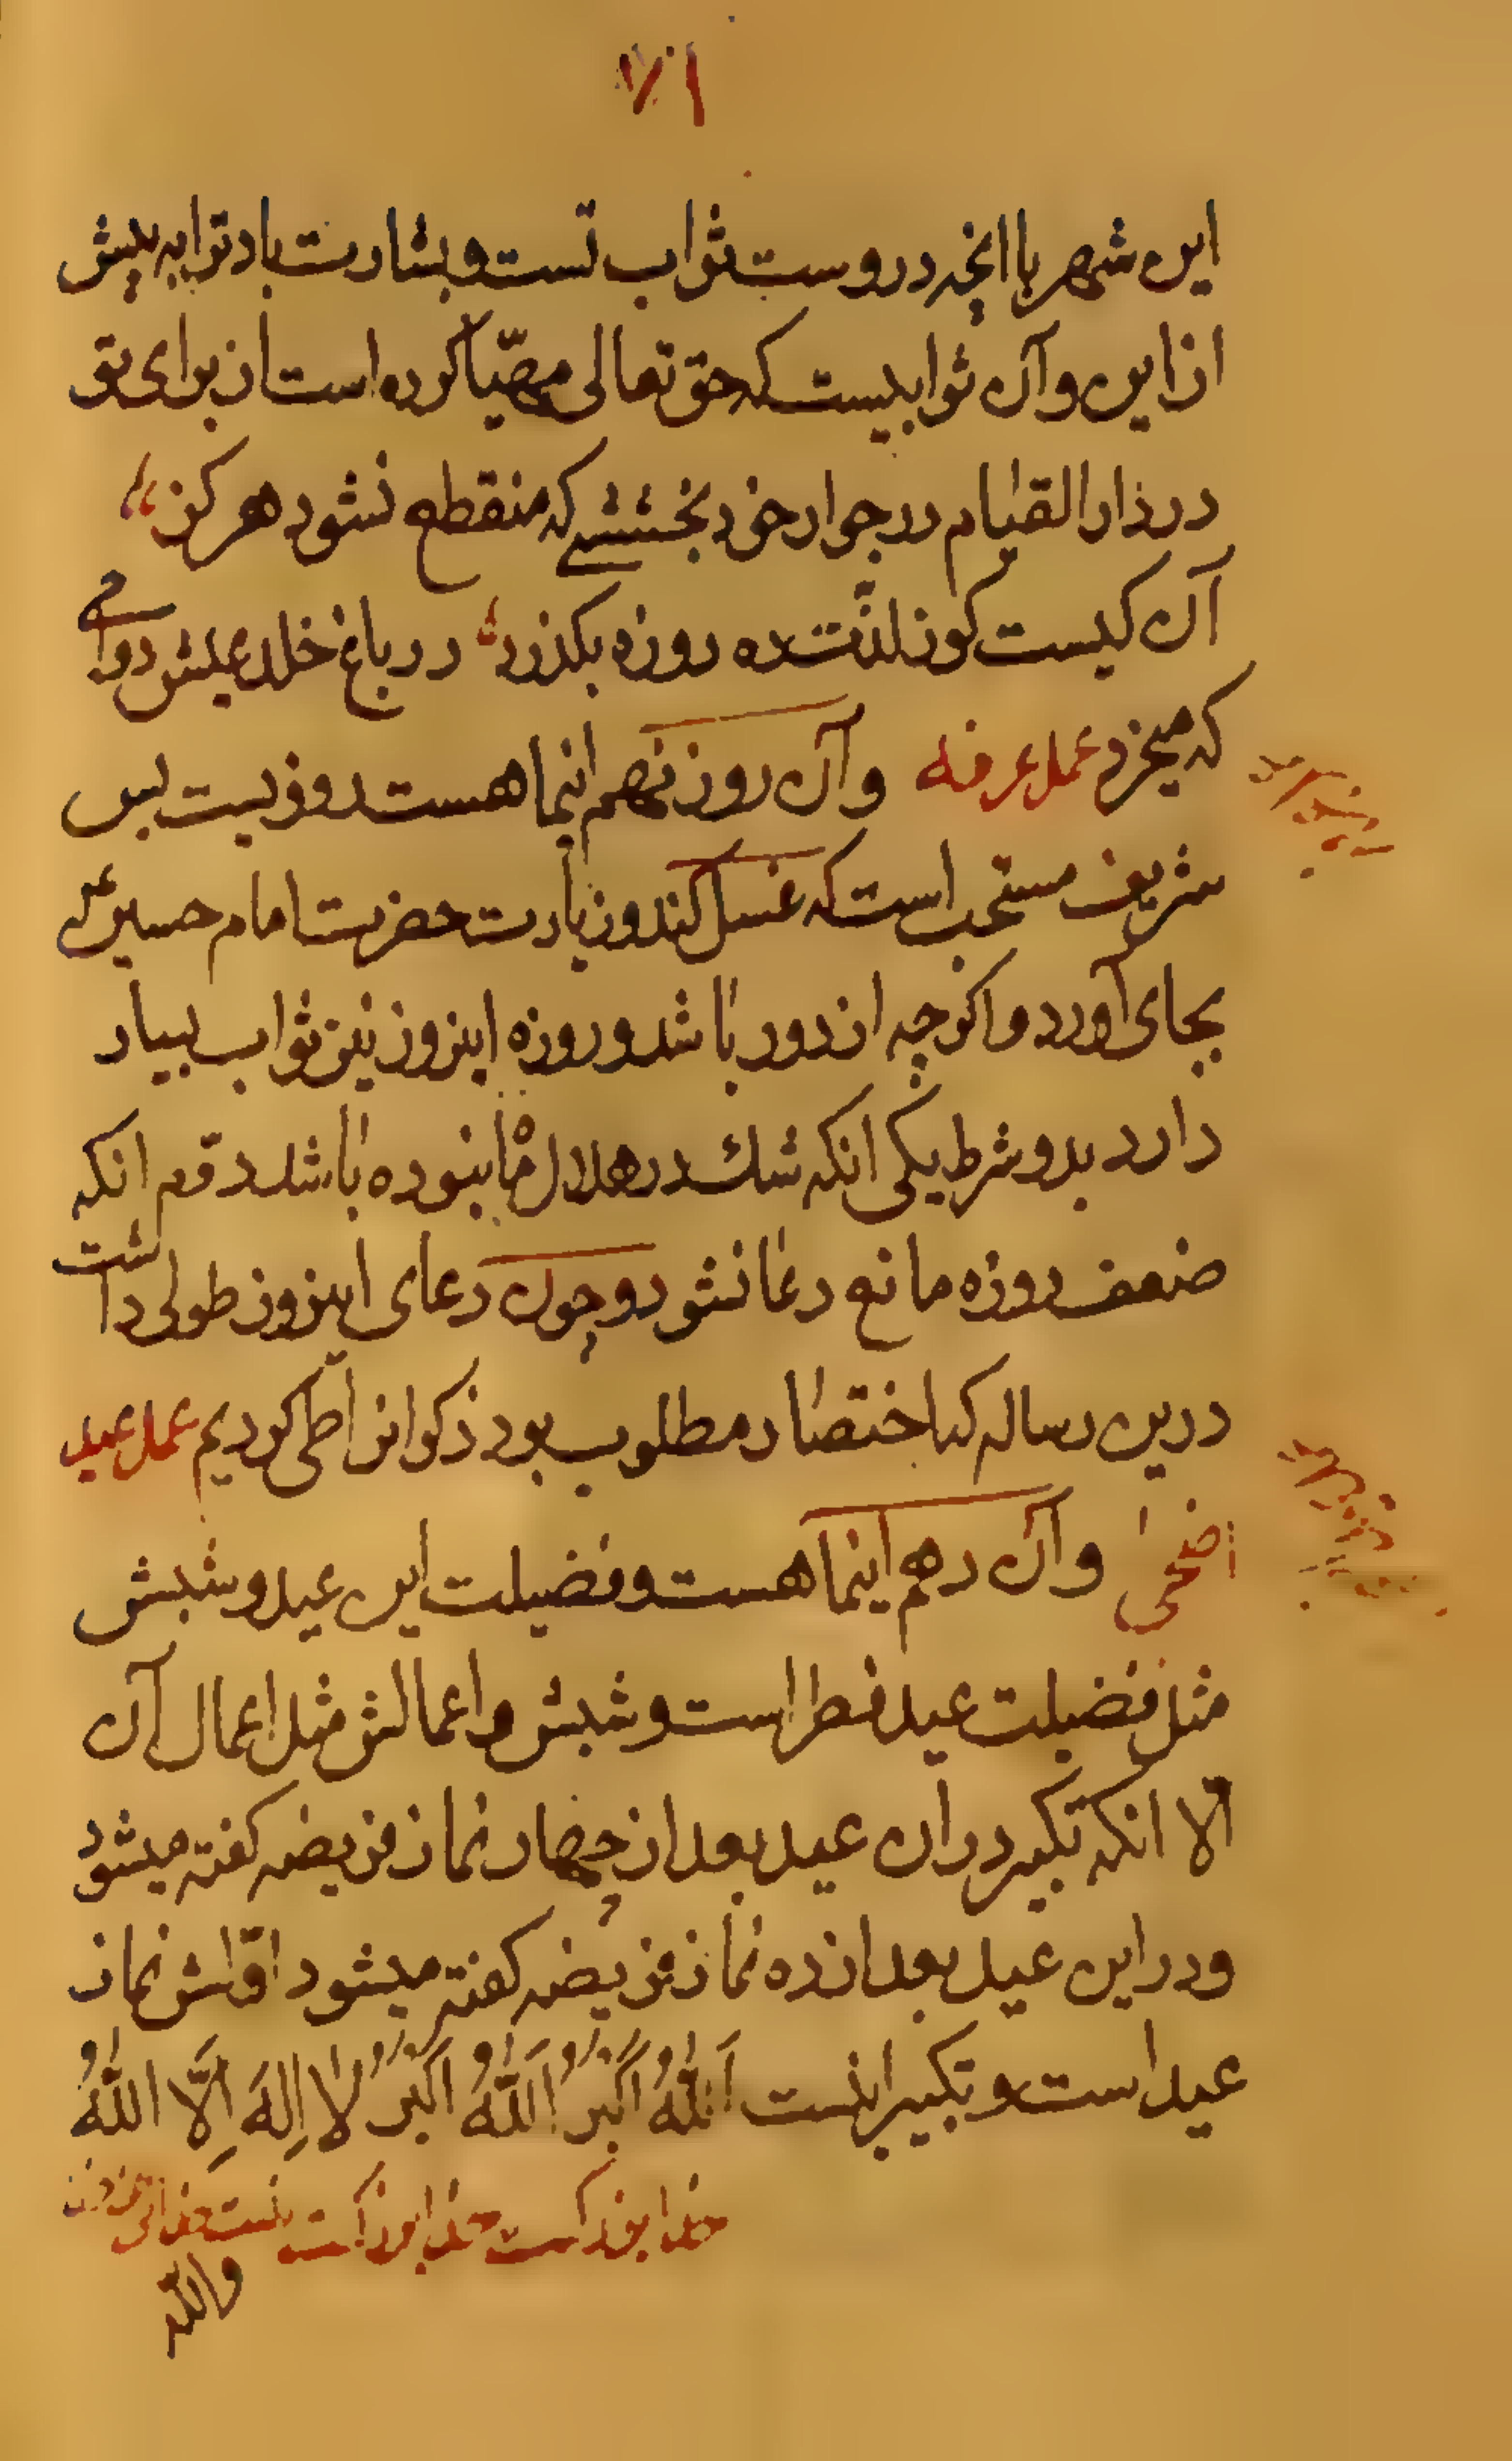 این شهر باانچه دروست ثواب تست و بشارت باد ترا به پیش
ازاین و آن ثوابیست که حق تعالی مهیّا کرده است از برای تو
در دار القیام در جوار خود بخششے که منقطع نشود هرکز
آن کیست کو ز لذّت ده روزه بکذرد در باغ خلد عیش دوامے
که میخرد عمل عرفه وآن روز نهم اینماهست و روزیست بس
شریف مستحب است که غسل کند و زیارت حضرت امام حسین ع
بجای آورد و اکرچه از دور باشد و روزه اینروز نیز ثواب بسیار
دارد بدو شرط یکی انکه شک در هلال ماه نبوده باشد دوم انکه
ضعف روزه مانع دعا نشود و چون دعای اینروز طولی داشت
درین رساله که اختصار مطلوب بود ذکر انرا طی کردیم عمل عید
اضحی وآن دهم اینماهست و فضیلت این عید و شبش
مثل فضیلت عید فطر است و شبش و اعمالش مثل اعمال آن
الا انکه تکبیر دران عید بعد از چهار نماز فریضه کفته میشود
و در این عید بعد از ده نماز فریضه کفته میشود اوّلش نماز
عید است و تکبیر اینست اَللّٰهُ اَکْبَرُ اَللّٰهُ اَکْبَرُ لا اِلٰهَ اِلَّا اللّٰهُ
خدا بزرکست خدا بزرکست نیست خدائی
واللّه